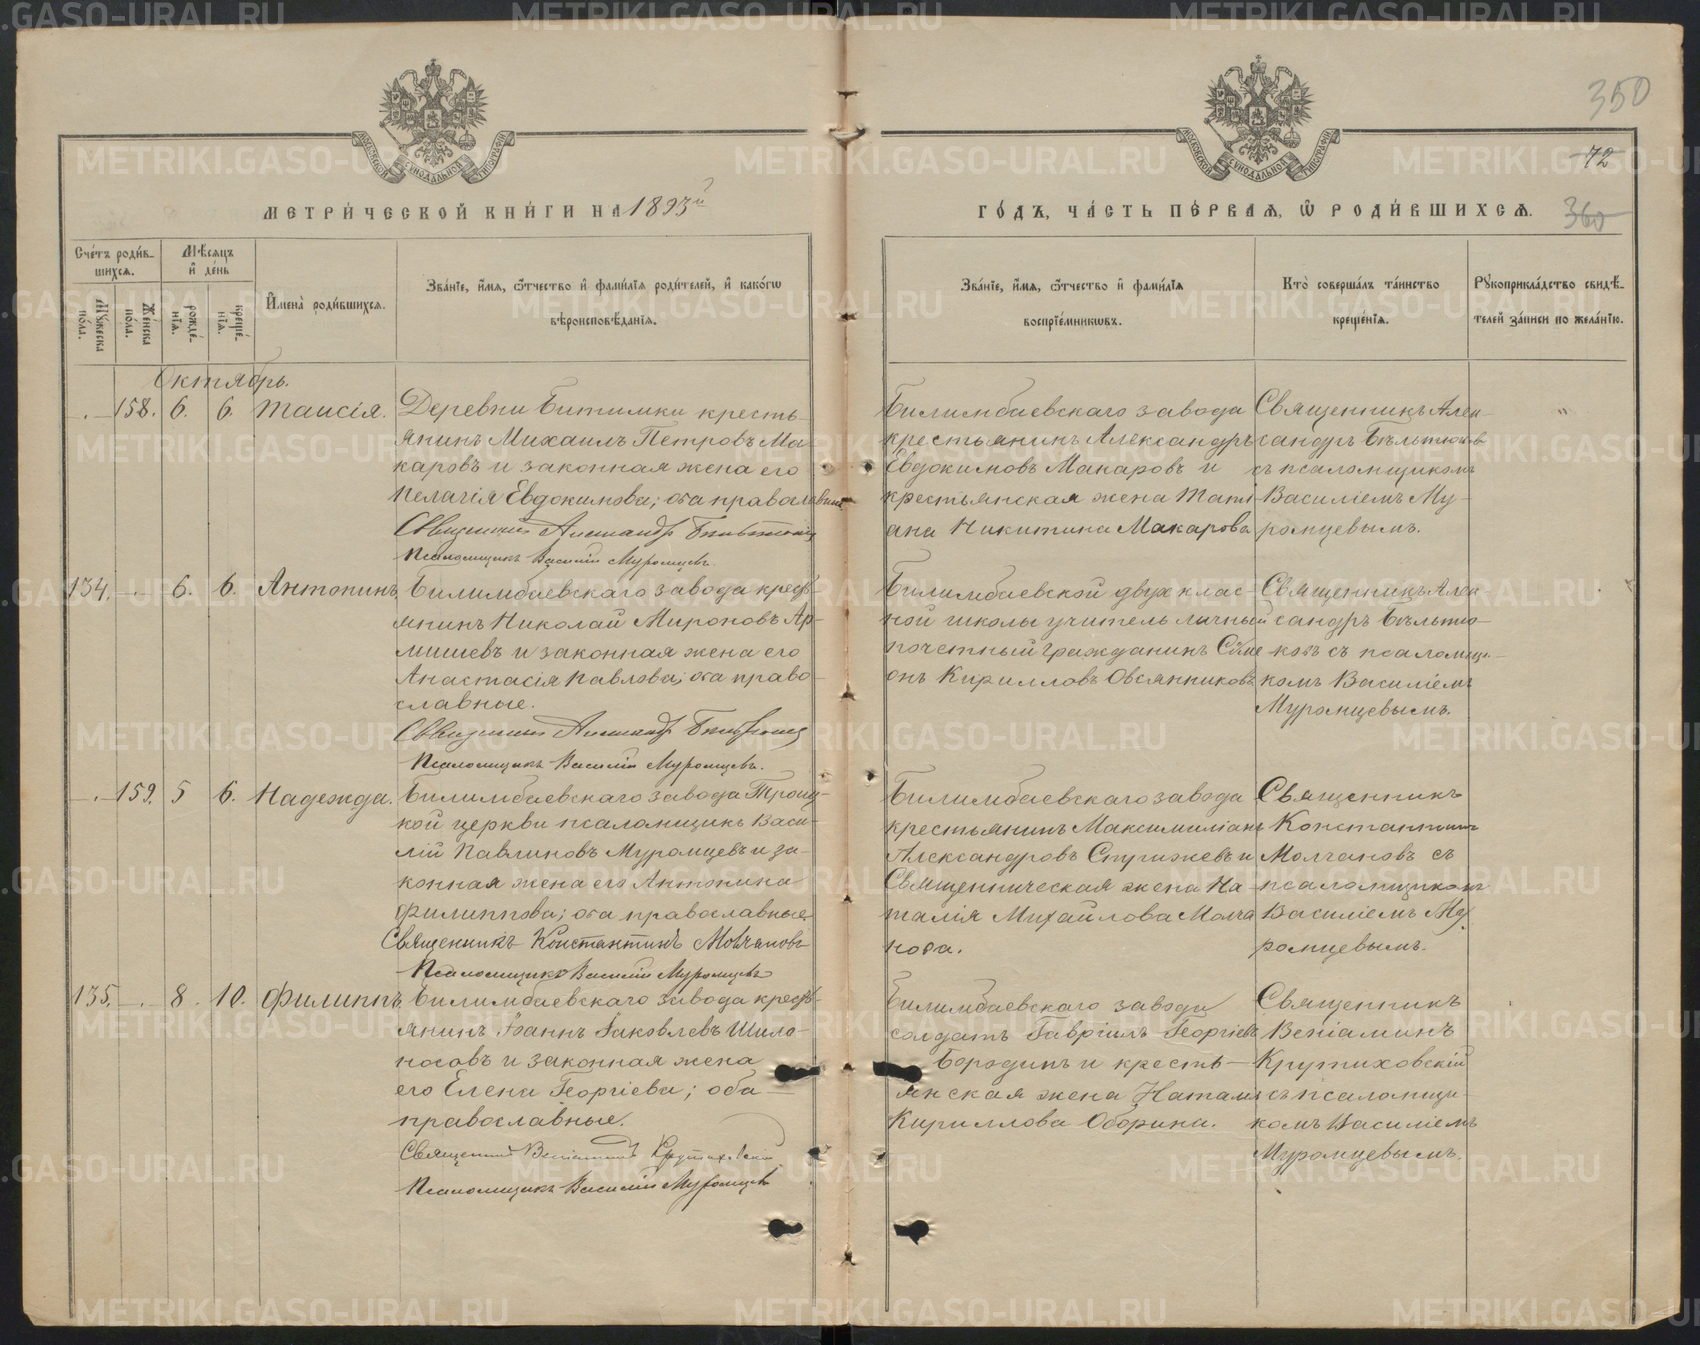 350
72
360
МЕТРИ́ЧЕСКОЙ КНИ́ГИ НА 1893й
ГО́ДЪ, ЧА́СТЬ ПЕ́РВАѦ, Ѽ РОДИ́ВШИХСѦ.
Сче́тъ роди́в-
шихсѧ.
Мꙋ́жеска
по́ла.
Же́нска
по́ла.
Мѣ́сѧцъ
и҆ де́нь
рожде́-
нїѧ.
креще́-
нїѧ.
И҆мена̀ роди́вшихсѧ.
Зва́нїе, и҆́мѧ, ѻ҆́тчество и҆ фами́лїѧ роди́телей, и҆ како́гѡ
вѣроисповѣ́данїѧ.
Зва́нїе, и҆́мѧ, ѻ҆́тчество и҆ фами́лїѧ
воспрїе́мникѡвъ.
Кто̀ соверша́лъ та́инство
креще́нїѧ.
Рꙋкоприкла́дство свидѣ́-
телей за́писи по жела́нїю.
Октябрь.
158. 6. 6. Таисія.
Деревни Битимки кресть-
янинъ Михаилъ Петровъ Ма-
каровъ и законная жена его
Пелагія Евдокимова; оба православные
Священникъ Александръ Бѣльтюковъ
Псаломщикъ Василій Муромцевъ.
Билимбаевскаго завода
крестьянинъ Александръ
Евдокимовъ Макаровъ и
крестьянская жена Тать-
ана Никитина Макарова
Священникъ Алек-
сандръ Бѣльтюковъ
съ псаломщикомъ
Василіемъ Му-
ромцевымъ.
134. 6. 6. Антонинъ
Билимбаевскаго завода кресть-
янинъ Николай Мироновъ Ар-
мишевъ и законная жена его
Анастасія Павлова; оба право-
славные.
Священникъ Александръ Бѣльтюковъ
Псаломщикъ Василій Муромцевъ.
Билимбаевской двухклас-
ной школы учитель личный
почетный гражданинъ Симе
онъ Кирилловъ Овсянниковъ
Священникъ Алек-
сандръ Бѣльтю-
ковъ съ псаломщи-
комъ Василіемъ
Муромцевымъ.
159. 5 6. Надежда.
Билимбаевскаго завода Троиц-
кой церкви псаломщикъ Васи-
лій Павлиновъ Муромцевъ и за-
конная жена его Антонина
Филиппова; оба православные
Священникъ Константинъ Молчановъ
Псаломщикъ Василій Муромцевъ
Билимбаевскаго завода
крестьянинъ Максимиліанъ
Александровъ Стрижевъ и
Священническая жена На-
талія Михайлова Молча
нова.
Священникъ
Константинъ
Молчановъ съ
псаломщикомъ
Василіемъ Му-
ромцевымъ.
135. 8. 10. Филиппъ
Билимбаевскаго завода кресть-
янинъ Іоаннъ Іаковлевъ Шило-
носовъ и законная жена
его Елена Георгіева; оба
православные.
Священникъ Веніаминъ Крутиховскій
Псаломщикъ Василій Муромцевъ
Билимбаевскаго завода
солдатъ Гавріилъ Георгіевъ
Бородинъ и кресть-
янская жена Наталія
Кириллова Оборина.
Священникъ
Веніаминъ
Крутиховскій
съ псаломщи-
комъ Василіемъ
Муромцевымъ.